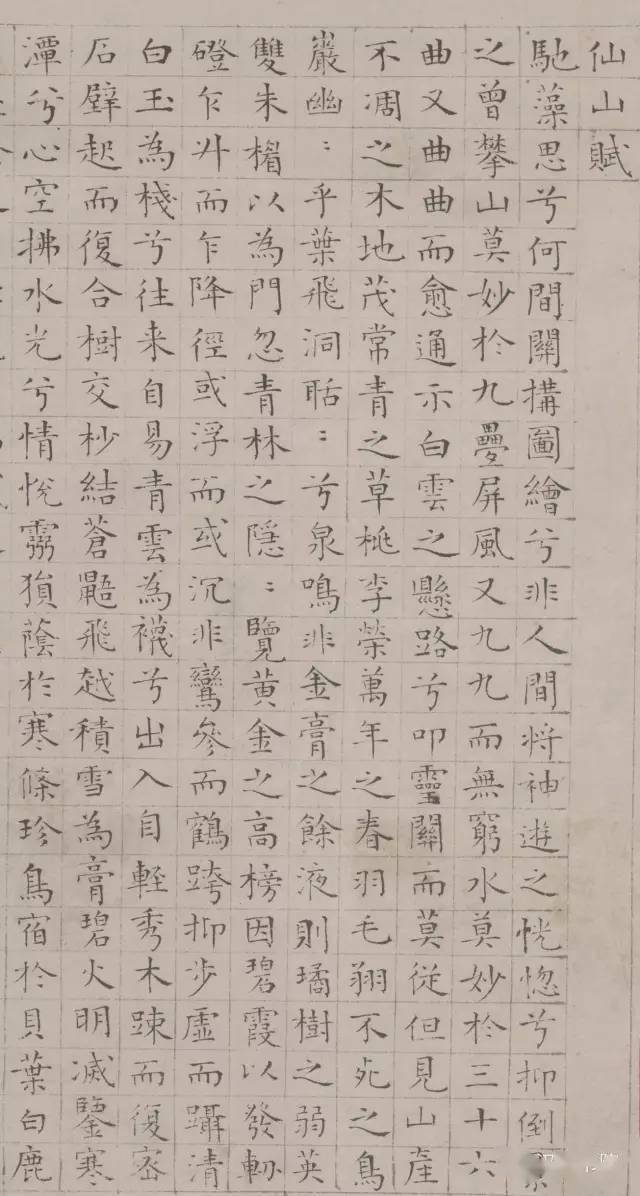 仙山賦
馳藻思兮何間關構圖繪兮非人間將神遊之恍惚兮抑倒
之曾攀山莫妙於九疊屏風又九九而無窮水莫妙於三十六
曲又曲曲而愈通示白雲之懸路兮叩靈關而莫從但見山產
不凋之木地茂常青之草桃李榮萬年之春羽毛翔不死之鳥
巖幽〻乎葉飛洞聒〻兮泉鳴非金膏之餘液則璚樹之弱英
雙朱楣以為門忽青林之隱〻覽黃金之高榜因碧霞以發軔
磴乍升而乍降徑或浮而或沉非鸞參而鶴跨抑步虛而躡清
白玉為棧兮往来自易青雲為襪兮出入自輕秀木踈而復密
石壁起而復合樹交杪結蒼鼯飛越積雪為膏碧火明滅鑒寒
潭兮心空拂水光兮情悅蔭於寒條珍鳥宿於貝葉白鹿